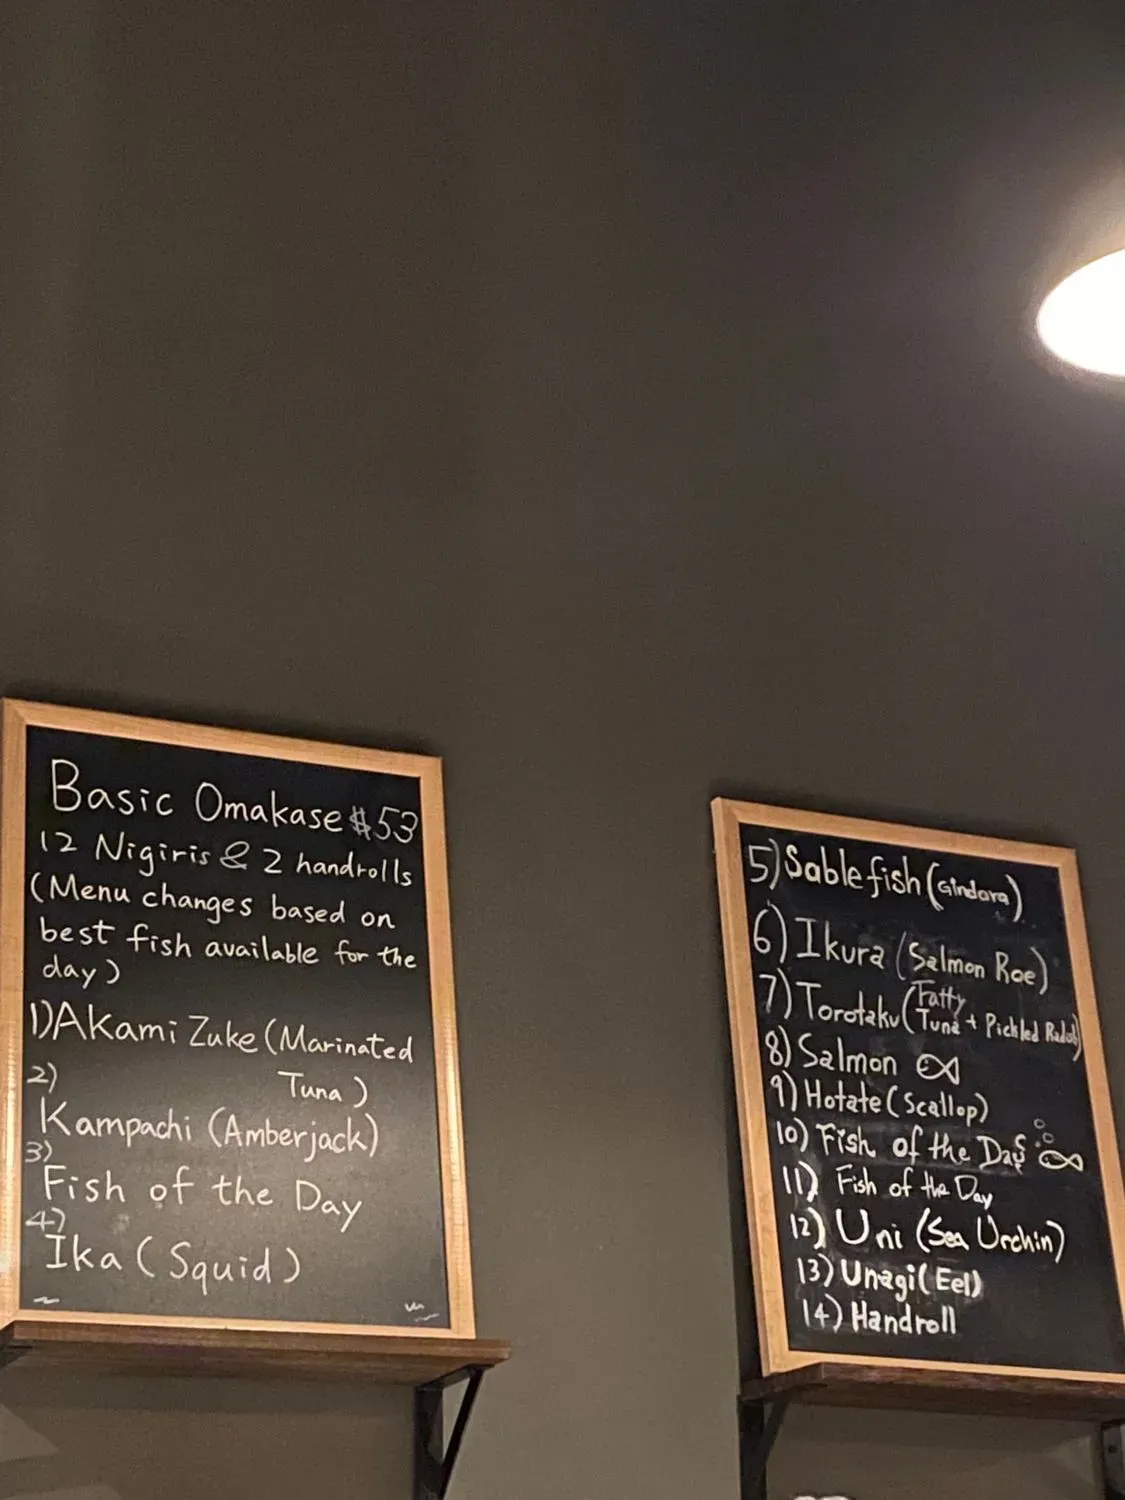 Basic Omakase $53
12 Nigiris & 2 handrolls
(Menu changes based on
best fish available for the
day)
1)AKami Zuke (Marinated
Tuna)
2)
Kampachi (Amberjack)
3)
Fish of the Day
4)
Ika (Squid)
5) Sablefish (Gindara)
6) Ikura (Salmon Roe)
7) Torotaku (Fatty
Tuna + Pickled Radish)
8) Salmon
9) Hotate (Scallop)
10) Fish of the Day
11) Fish of the Day
12) Uni (Sea Urchin)
13) Unagi (Eel)
14) Handroll